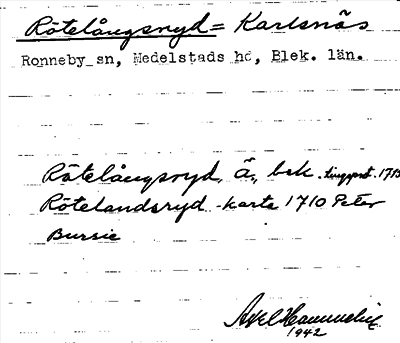 Rötelångsryd = Karlsnäs
Ronneby sn, Medelstads hd, Blek. län.
Rötelångsryd, Ä, bek. tingsprot. 171
Rötelandsryd - karta 1710 Peter
Bursie
Axel
1942